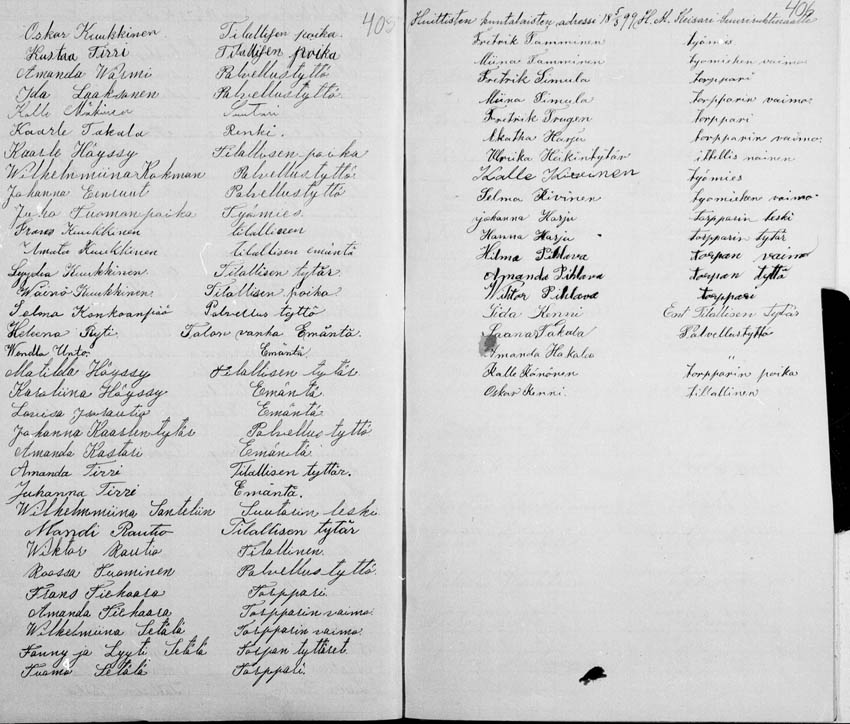 405
Oskar Kuukkinen Tilallisen poika.
Kustaa Tirri Tilallisen poika
Amanda Wärmi Palvellustyttö
Ida Laaksonen Palvellustyttö.
Kalle Suutari
Kaarle Takala Renki.
Kaarle Höyssy Tilallisen poika
Wilhelmmiina Kokman Palvellustyttö.
Johanna Palvellustyttö
Juho Tuomanpoika Työmies.
Frans Kuukkinen tilallisen
Amata Kuukkinen tilallisen emäntä
Lyydia Kuukkinen. Tilallisen tytär.
Wäinö Kuukkinen. Tilallisen poika.
Selma Kankoanpää Palvellus tyttö
Helena Ryti. Talon vanha Emäntä.
Wendla Unto. Emäntä.
Matilda Höyssy Tilallisen tytär
Karoliina Höyssy Emäntä.
Lovisa Isorautio Emäntä.
Johanna Kaarlentytär Palvellustyttö
Amanda Kastari Emäntä
Amanda Tirri Tilallisen tyttär.
Juhanna Tirri Emäntä.
Wilhelmmiina Santeliin Suutarin leski.
Mandi Rautio Tilallisen tytär
Wiktor Rautio Tilallinen.
Roossa Tuominen Palvellustyttö.
Frans Fiehaara Torppari.
Amanda Fiehaara Torpparin vaimo.
Wilhelmiina Setälä Torpparin vaimo.
Fanny ja Lyyti Setälä Torpan tyttäret.
Tuomo Setälä Torppari.
406
Huittisten kuntalaisten adressi 18 5/3 99 H. M. Keisari Suuriruhtinaalle
Fretrik Tamminen työmies
Miina Tamminen työmiehen vaimo
Fretrik Simula torppari
Miina Simula torpparin vaimo
Fretrik Trugen torppari
Akatha Harju torpparin vaimo.
Ulriika Heikintytär itsellis nainen
Kalle Kivinen työmies
Selma Kivinen työmiehen vaimo
johanna Harju torpparin leski
Hanna Harju torpparin tytär
Hilma Pihlava torpan vaimo
Amanda Pihlava torpan tyttö
Wiktor Pihlava torppari
Iida Kenni Ent Tilallisen Tytär
Saana Takala Palvellustyttö
Amanda Hakala "
Kalle Könönen torpparin poika
Oskar Kenni. tilallinen